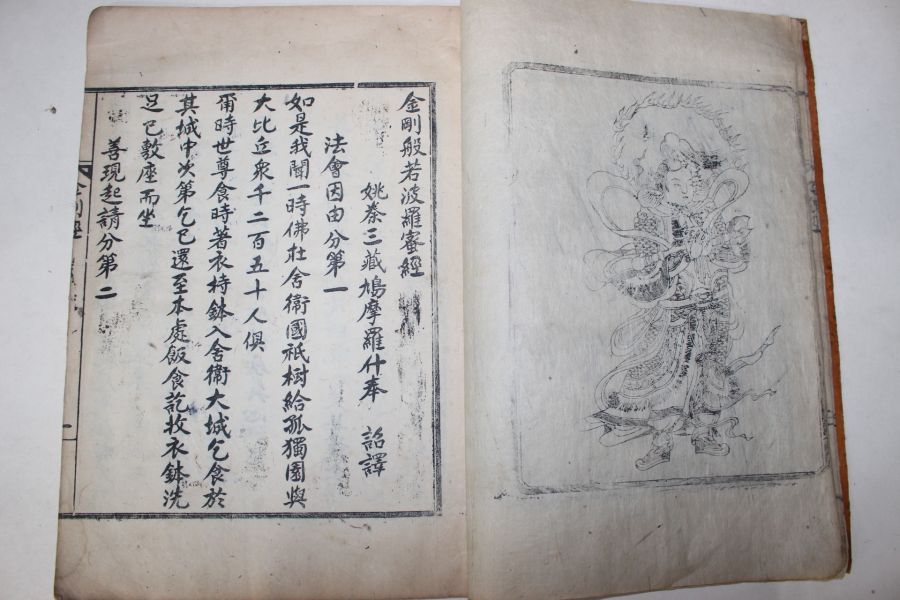 金剛般若波羅蜜經
姚秦三藏鳩摩羅什奉 詔譯
法會因由分第一
如是我聞一時佛在舍衛國祇樹給孤獨園與
大比丘眾千二百五十人俱
爾時世尊食時著衣持鉢入舍衛大城乞食於
其城中次第乞已還至本處飯食訖收衣鉢洗
足已敷座而坐
善現起請分第二